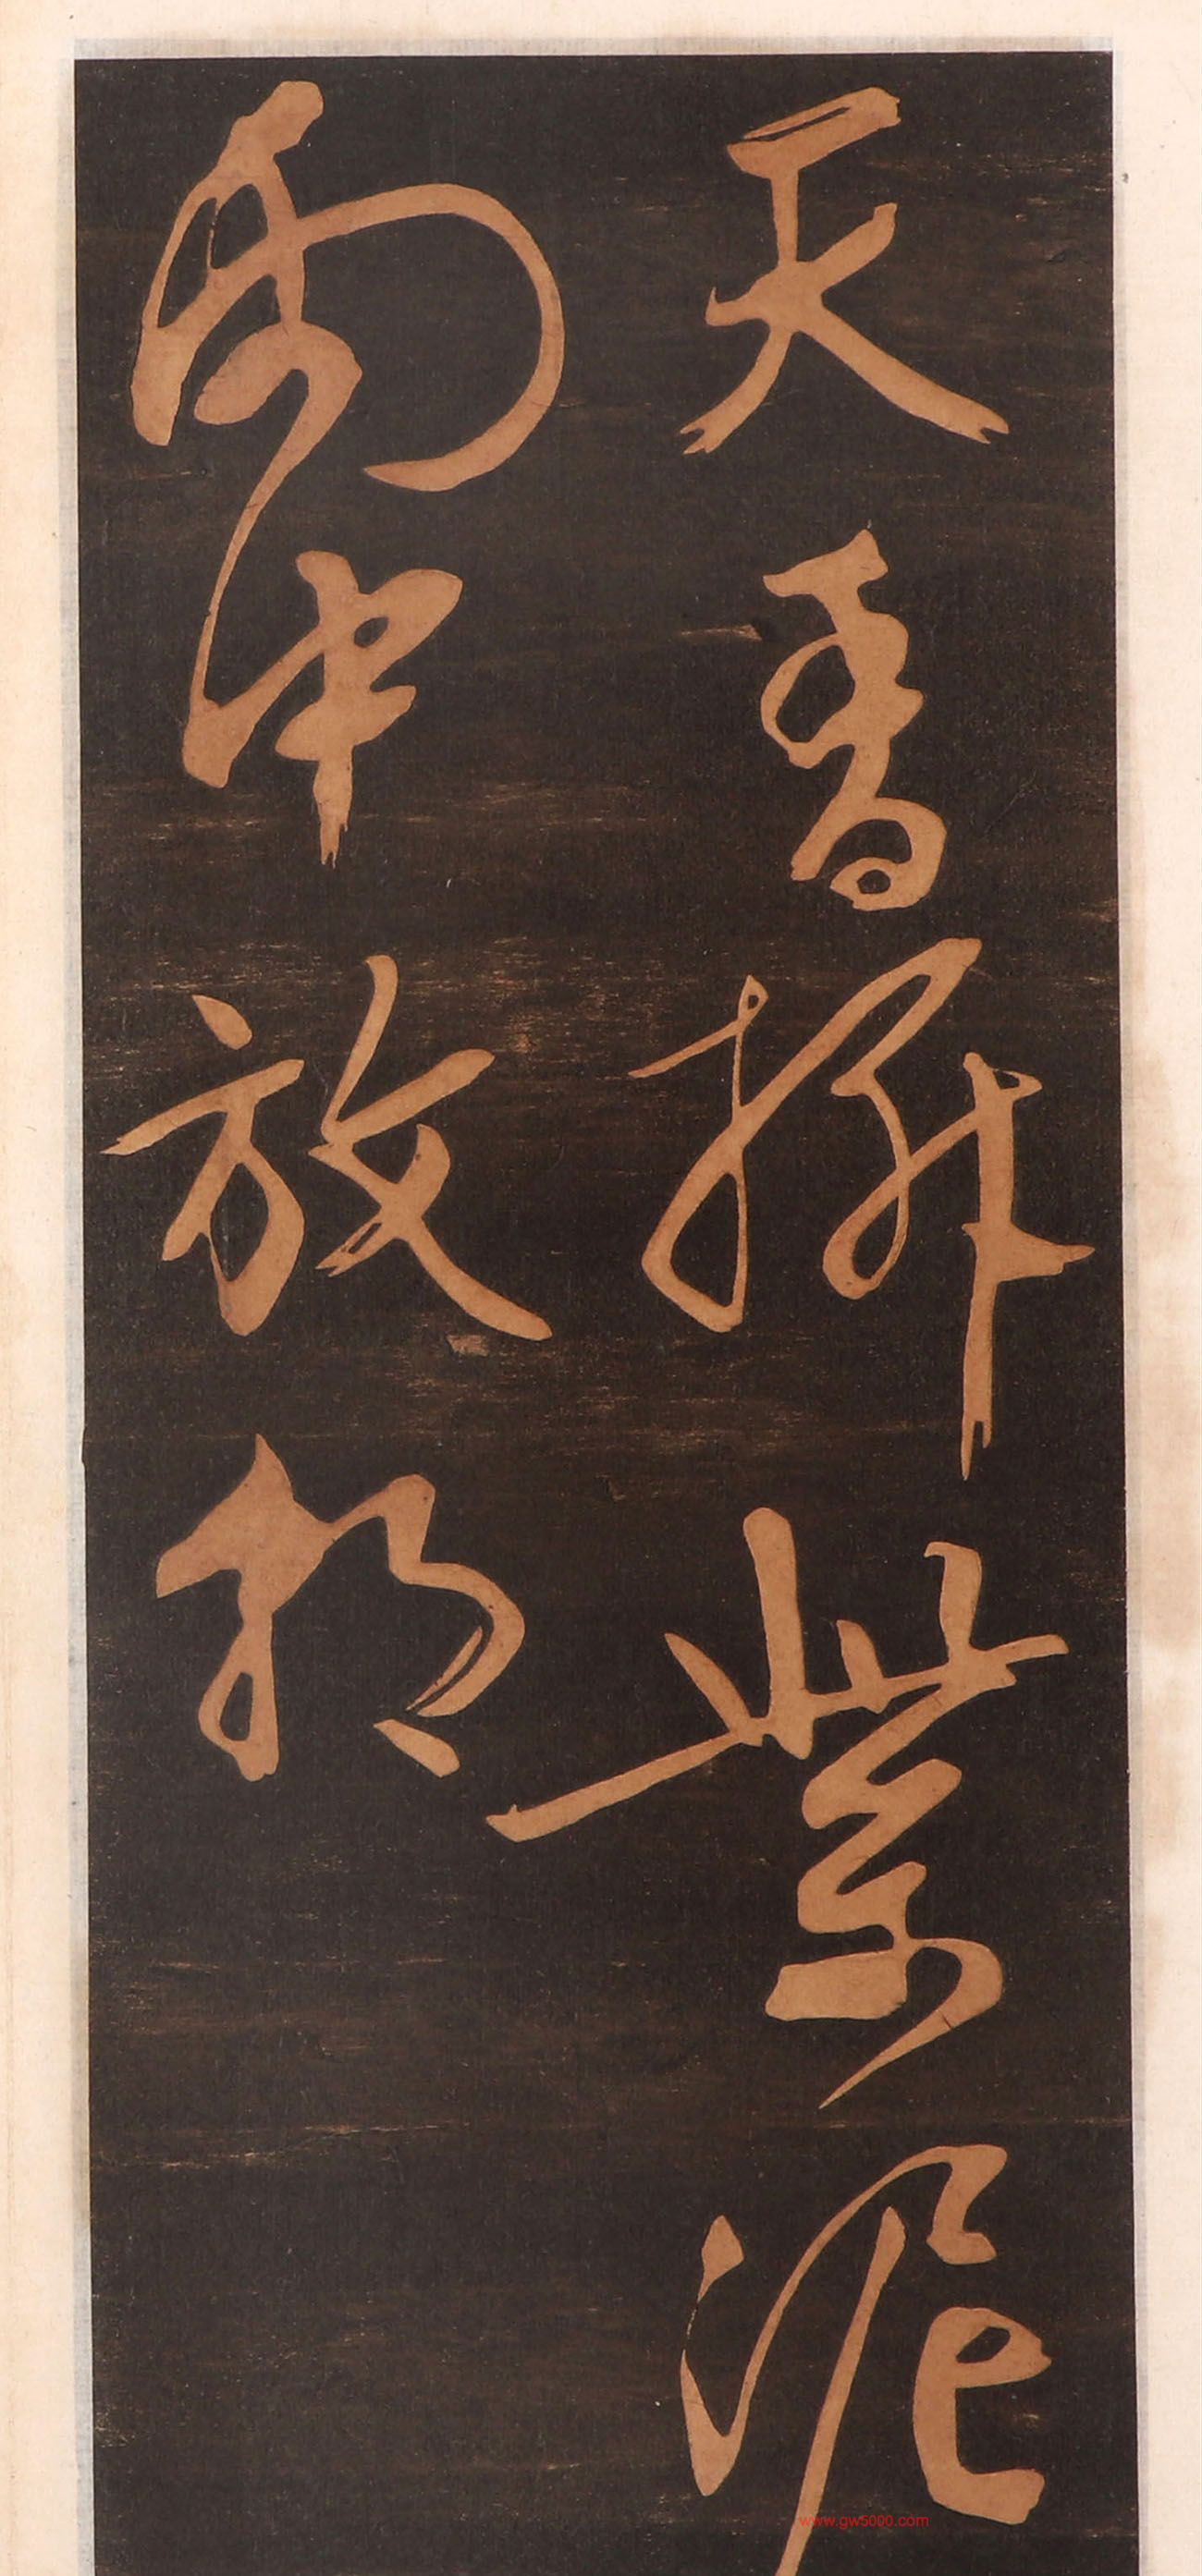 天香拆紫泥
雨中放朝
www.gw5000.com